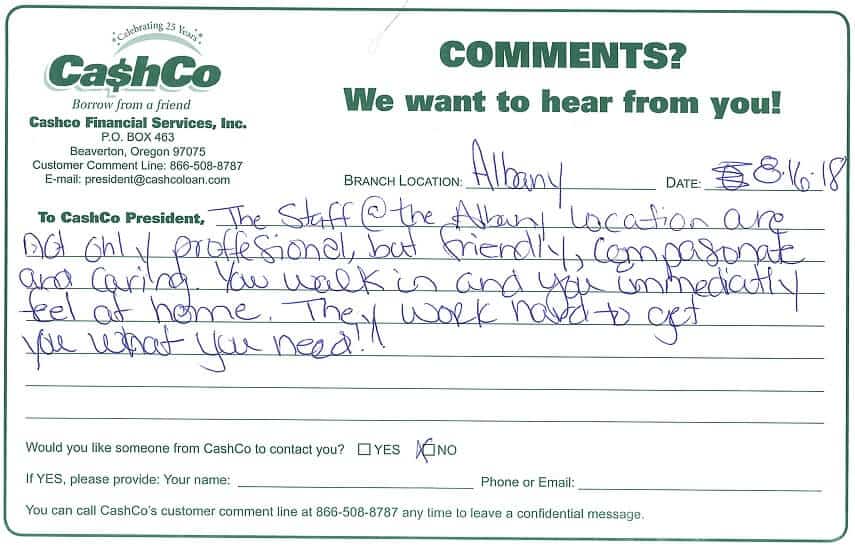 Celebrating 25 Years
Ca$hCo
Borrow from a friend
Cashco Financial Services, Inc.
P.O. BOX 463
Beaverton, Oregon 97075
Customer Comment Line: 866-508-8787
E-mail: president@cashcoloan.com
COMMENTS?
We want to hear from you!
BRANCH LOCATION: Albany DATE: 8-16-18
To CashCo President, The Staff @ the Albany location are
not only proffesional, but friendly, compasonate
and caring. You walk in and you immediatly
feel at home. They work hard to get
you what you need!!
Would you like someone from CashCo to contact you? YES NO
If YES, please provide: Your name: Phone or Email:
You can call CashCo's customer comment line at 866-508-8787 any time to leave a confidential message.